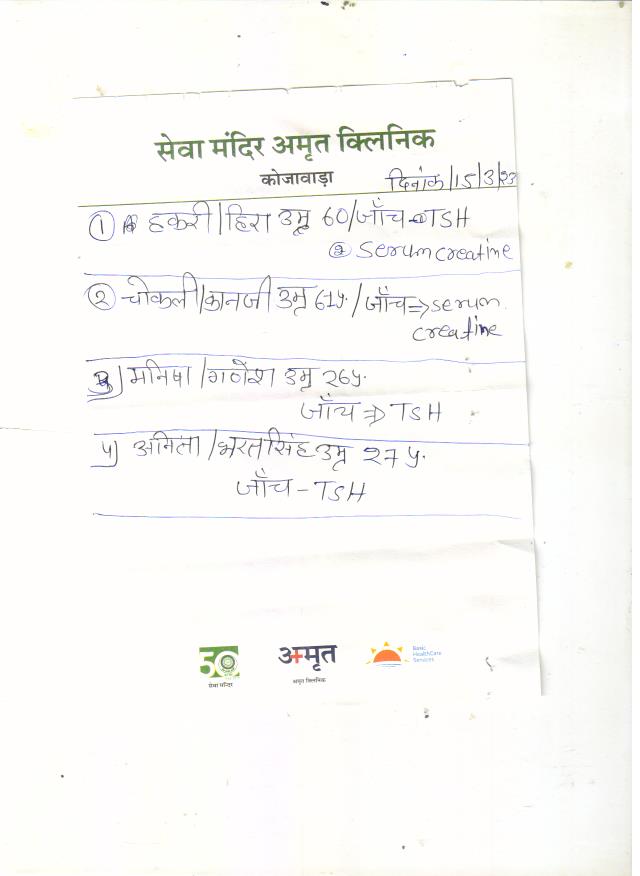 सेवा मंदिर अमृत क्लिनिक
कोजावाड़ा
दिनांक/15/3/23
① हकरी/हिरा उम्र 60/जाँच-① TSH
② serum creatine
② चोकली/कानजी उम्र 61y. / जाँच⇒serum
creatine
3) मनिषा/गणेश उम्र 26y.
जाँच ⇒ TSH
4) अनिता/भरतसिंह उम्र 27 y.
जाँच - TSH
50
सेवा मन्दिर
अमृत
अमृत क्लिनिक
Basic
HealthCare
Services